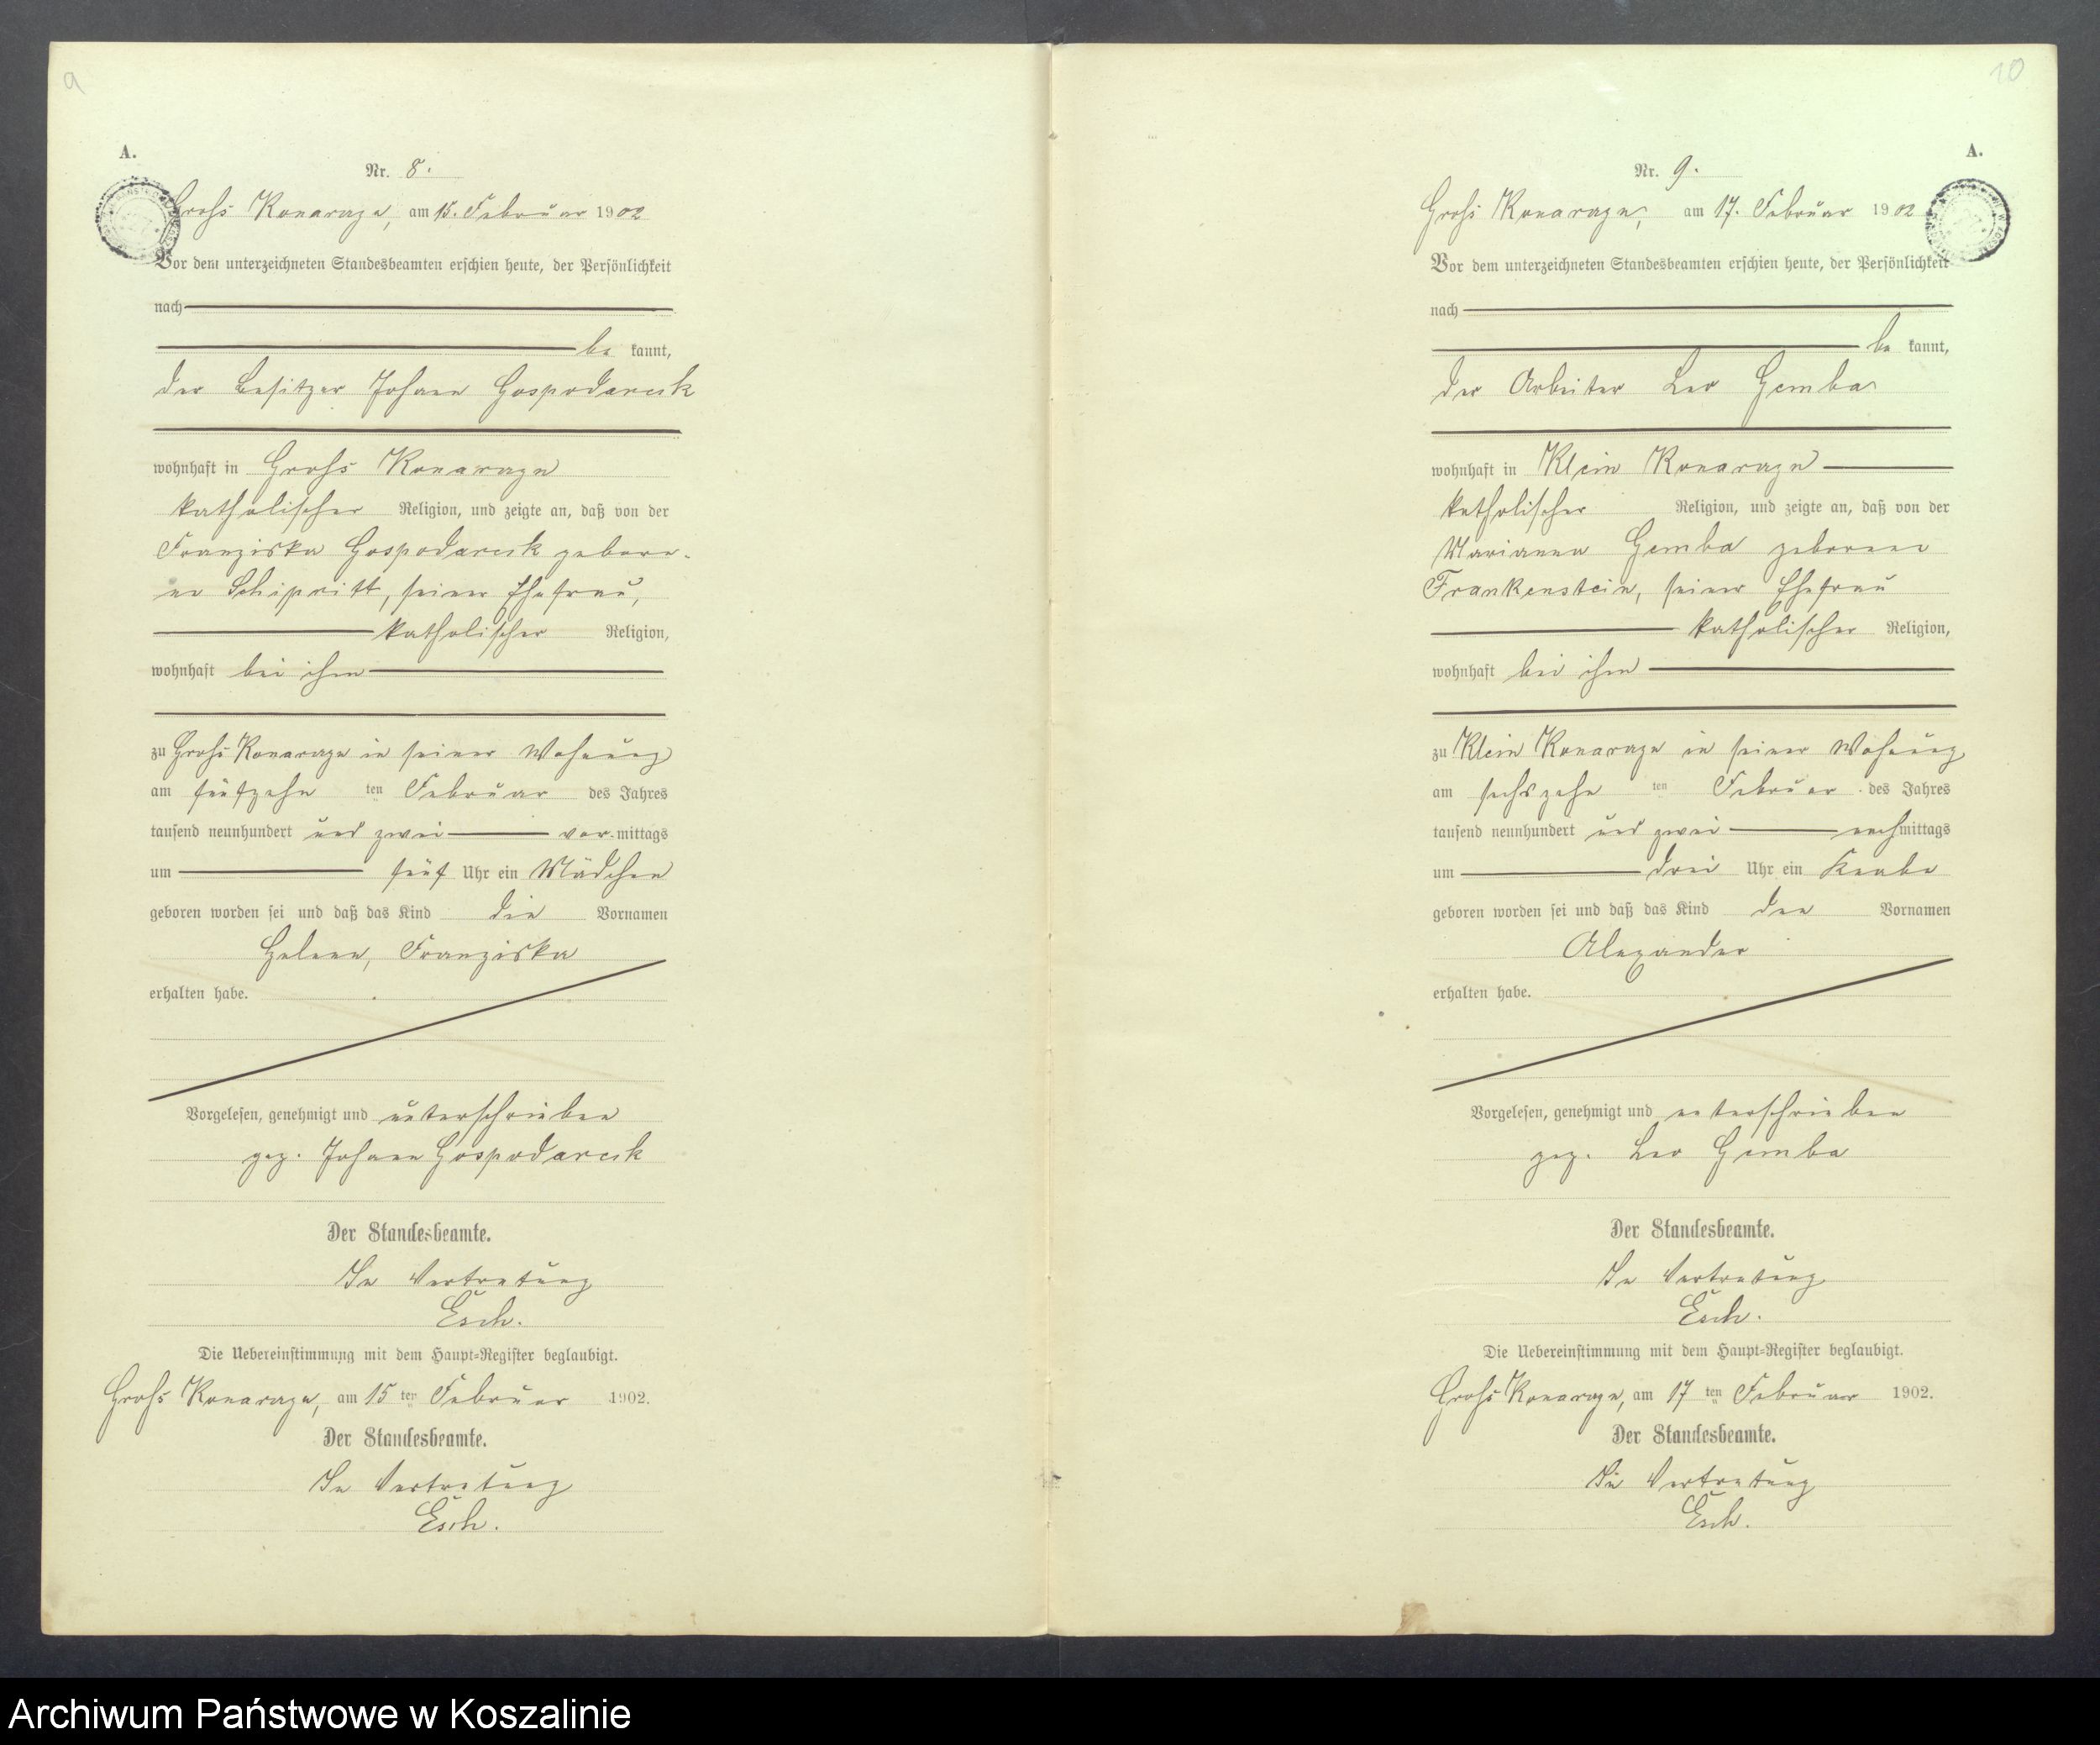 9
A.
Nr. 8.
Groß Konarzyn, am 15. Februar 1902
Vor dem unterzeichneten Standesbeamten erschien heute, der Persönlichkeit
nach
be kannt,
der Besitzer Johann Gospodarek
wohnhaft in Groß Konarzyn
katholischer Religion, und zeigte an, daß von der
Franziska Gospodarek gebore-
ne Schipritt, seiner Ehefrau,
katholischer Religion,
wohnhaft bei ihm
zu Groß Konarzyn in seiner Wohnung
am fünfzehn ten Februar des Jahres
tausend neunhundert und zwei vor-mittags
um fünf Uhr ein Mädchen
geboren worden sei und daß das Kind die Vornamen
Helene, Franziska
erhalten habe.
Vorgelesen, genehmigt und unterschrieben
gez. Johann Gospodarek
Der Standesbeamte.
In Vertretung
Esch.
Die Uebereinstimmung mit dem Haupt-Register beglaubigt.
Groß Konarzyn, am 15 ten Februar 1902.
Der Standesbeamte.
In Vertretung
Esch.
10
A.
Nr. 9.
Groß Konarzyn, am 17. Februar 1902
Vor dem unterzeichneten Standesbeamten erschien heute, der Persönlichkeit
nach
be kannt,
der Arbeiter Leo Gemba
wohnhaft in Klein Konarzyn
katholischer Religion, und zeigte an, daß von der
Marianna Gemba geborene
Frankenstein, seiner Ehefrau
katholischer Religion,
wohnhaft bei ihm
zu Klein Konarzyn in seiner Wohnung
am sechszehn ten Februar des Jahres
tausend neunhundert und zwei nachmittags
um drei Uhr ein Knabe
geboren worden sei und daß das Kind den Vornamen
Alexander
erhalten habe.
Vorgelesen, genehmigt und unterschrieben
gez. Leo Gemba
Der Standesbeamte.
In Vertretung
Esch.
Die Uebereinstimmung mit dem Haupt-Register beglaubigt.
Groß Konarzyn, am 17 ten Februar 1902.
Der Standesbeamte.
In Vertretung
Esch.
Archiwum Państwowe w Koszalinie